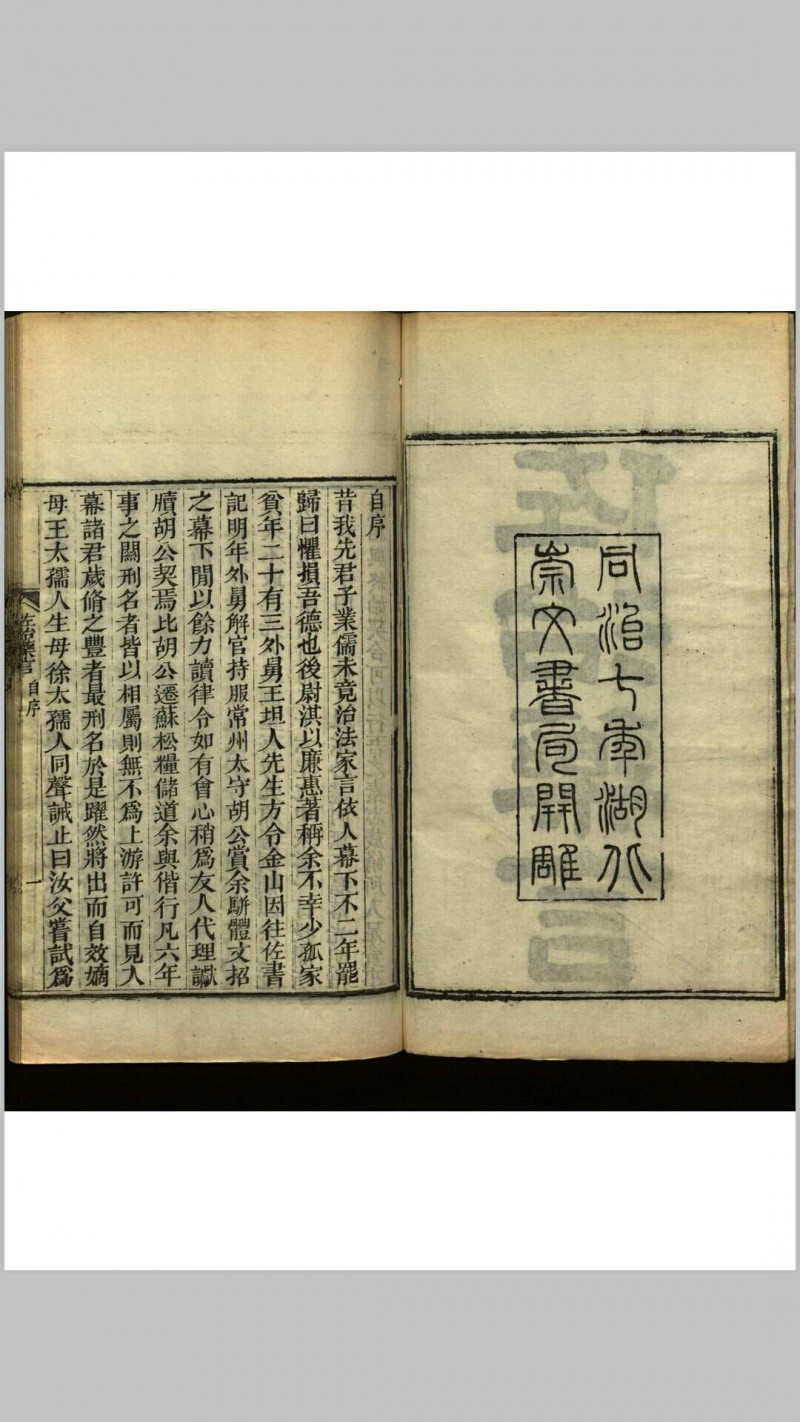 同治七年湖北
崇文書局開雕
自序
昔我先君子業儒未竟治法家言依人幕下不二年罷
歸曰懼損吾德也後尉淇以廉惠著稱余不幸少孤家
貧年二十有三外舅王坦人先生方令金山因往佐書
記明年外舅解官持服常州太守胡公賞余駢體文招
之幕下閒以餘力讀律令如有會心稍爲友人代理讞
牘胡公契焉比胡公遷蘇松糧儲道余與偕行凡六年
事之關刑名者皆以相屬則無不爲上游許可而見入
幕諸君歲脩之豐者最刑名於是躍然將出而自效嫡
母王太孺人生母徐太孺人同聲誡止曰汝父嘗試爲
佐治藥言 自序 一